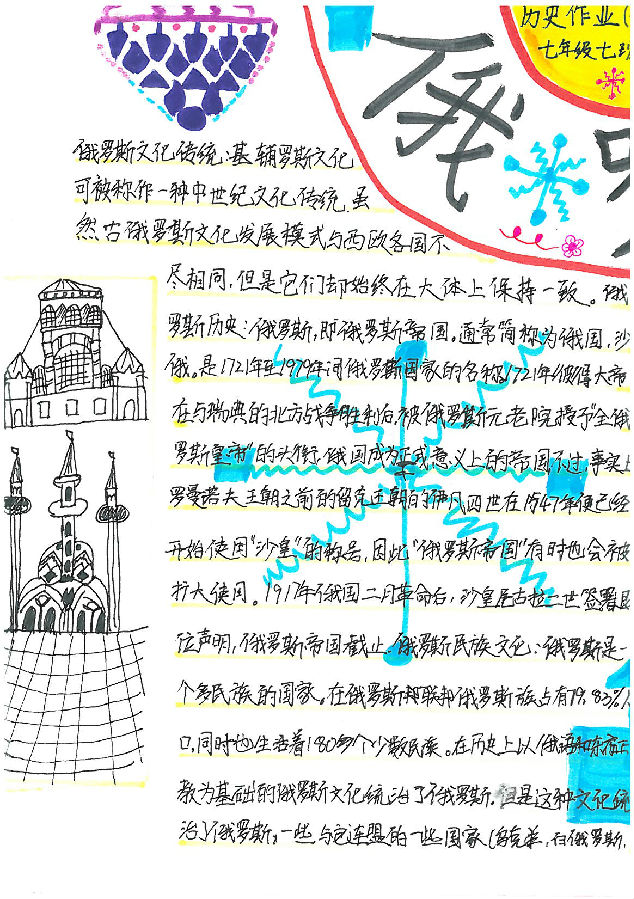 历史作业(
七年级七班
俄
俄罗斯文化传统:基辅罗斯文化
可被称作一种中世纪文化传统.虽
然古俄罗斯文化发展模式与西欧各国不
尽相同,但是它们却始终在大体上保持一致。俄
罗斯历史:俄罗斯,即俄罗斯帝国。通常简称为俄国,沙
俄。是1721年至1979年间俄罗斯国家的名称。1721年彼得大帝
在与瑞典的北方战争胜利后,被俄罗斯元老院授予"全俄
罗斯皇帝"的头衔.俄国成为正式意义上的帝国.不过,事实上
罗曼若夫王朝之前的留克王朝的伊凡四世在1547年便已经
开始使用"沙皇"的称号,因此"俄罗斯帝国"有时也会被
扩大使用。1917年俄国二月革命后,沙皇尼古拉二世签署退
位声明,俄罗斯帝国截止.俄罗斯民族文化:俄罗斯是一
个多民族的国家。在俄罗斯联邦俄罗斯族占有79.83%人
口,同时也生活着180多个少数民族。在历史上以俄语和东正
教为基础的俄罗斯文化统治了俄罗斯.但是这种文化统
治了俄罗斯,一些与它连盟的一些国家(乌克兰,白俄罗斯,